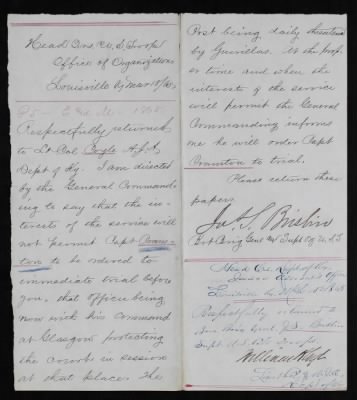 Head Qrs. U.S. Troops
Office of Organization
Louisville Ky Mar 18/65
Respectfully returned
to Lt Col Coyle A.J.A.
Dept of Ky. I am directed
by the General Command-
ing to say that the in-
terests of the service will
not permit Capt
to be ordered to
immediate trial before
you, that officer being
now with his command
at Glasgow protecting
the Court in session
at that place. The
Post being daily threatened
by Guerillas. At the prop-
er time and when the
interests of the service
will permit the General
Commanding informs
me he will order Capt
to trial.
Please return these
papers
Jas S. Brisbin
Bvt Brig Genl and Supt Org U.S.T.
Head Qrs. Dept of Ky.
Judge Advocate's Office
Louisville Ky
Respectfully returned to
Brig Genl J.S. Brisbin
Supt. U.S. Troops